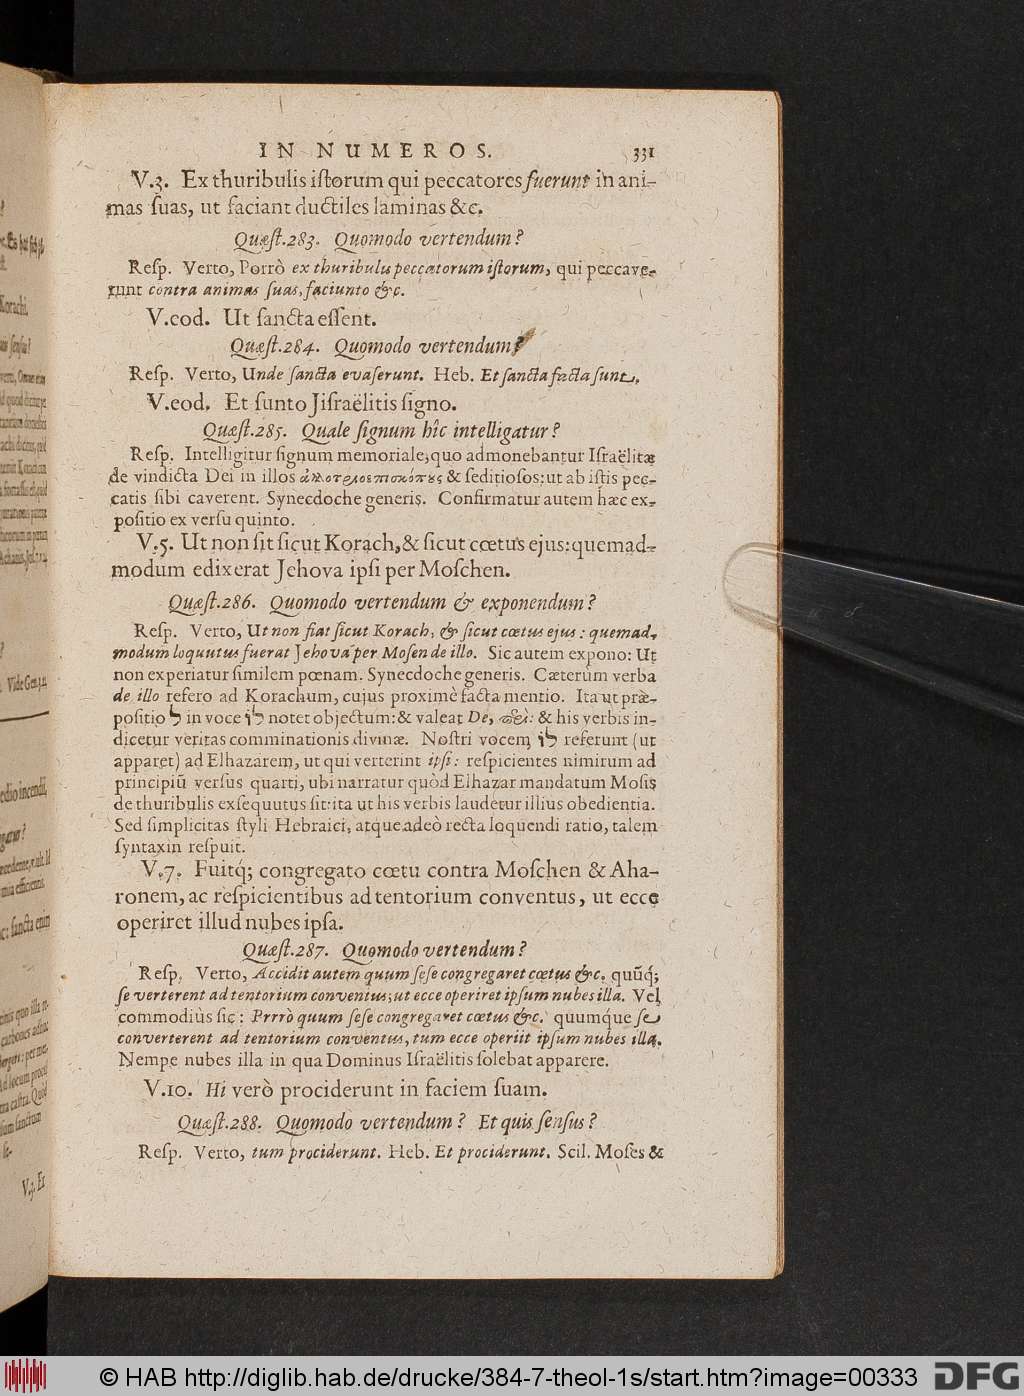 IN NUMEROS. 331
V.3. Ex thuribulis iſtorum qui peccatores fuerunt in ani-
mas ſuas, ut faciant ductiles làminas &c.
Quæſt.283. Quomodo vertendum?
Reſp. Verto, Porrò ex thuribulis peccatorum iſtorum, qui peccave-
runt contra animas ſuas, faciunto &c.
V.eod. Ut ſancta eſſent.
Quæſt.284. Quomodo vertendum?
Reſp. Verto, Unde ſancta evaſerunt. Heb. Et ſancta facta ſunt.
V.eod. Et ſunto Jiſraëlitis ſigno.
Quæſt.285. Quale ſignum hîc intelligatur?
Reſp. Intelligitur ſignum memoriale, quo admonebantur Iſraëlitæ
de vindicta Dei in illos & ſeditioſos: ut ab iſtis pec-
catis ſibi caverent. Synecdoche generis. Confirmatur autem hæc ex-
poſitio ex verſu quinto.
V.5. Ut non ſit ſicut Korach, & ſicut cœtus ejus: quemad-
modum edixerat Jehova ipſi per Moſchen.
Quæſt.286. Quomodo vertendum & exponendum?
Reſp. Verto, Ut non fiat ſicut Korach, & ſicut cœtus ejus: quemad-
modum loquutus fuerat Jehova per Moſen de illo. Sic autem expono: Ut
non experiatur ſimilem pœnam. Synecdoche generis. Cæterùm verba
de illo refero ad Korachum, cujus proximè facta mentio. Ita ut præ-
poſitio ל in voce לו notet objectum: & valeat De, & his verbis in-
dicetur veritas comminationis divinæ. Noſtri vocem לו referunt (ut
apparet) ad Elhazarem, ut qui verterint ipſi: reſpicientes nimirum ad
principiũ verſus quarti, ubi narratur quòd Elhazar mandatum Moſis
de thuribulis exſequutus ſit: ita ut his verbis laudetur illius obedientia.
Sed ſimplicitas ſtyli Hebraici, atque adeò recta loquendi ratio, talem
ſyntaxin reſpuit.
V.7. Fuitq́; congregato cœtu contra Moſchen & Aha-
ronem, ac reſpicientibus ad tentorium conventus, ut ecce
operiret illud nubes ipſa.
Quæſt.287. Quomodo vertendum?
Reſp. Verto, Accidit autem quum ſeſe congregaret cœtus &c. quũq́;
ſe verterent ad tentorium conventus, ut ecce operiret ipſum nubes illa. Vel
commodiùs ſic: Prrrò quum ſeſe congregaret cœtus &c. quumque ſe
converterent ad tentorium conventus, tum ecce operiit ipſum nubes illa.
Nempe nubes illa in qua Dominus Iſraëlitis ſolebat apparere.
V.10. Hi verò prociderunt in faciem ſuam.
Quæſt.288. Quomodo vertendum? Et quis ſenſus?
Reſp. Verto, tum prociderunt. Heb. Et prociderunt. Scil. Moſes &
© HAB http://diglib.hab.de/drucke/384-7-theol-1s/start.htm?image=00333
DFG